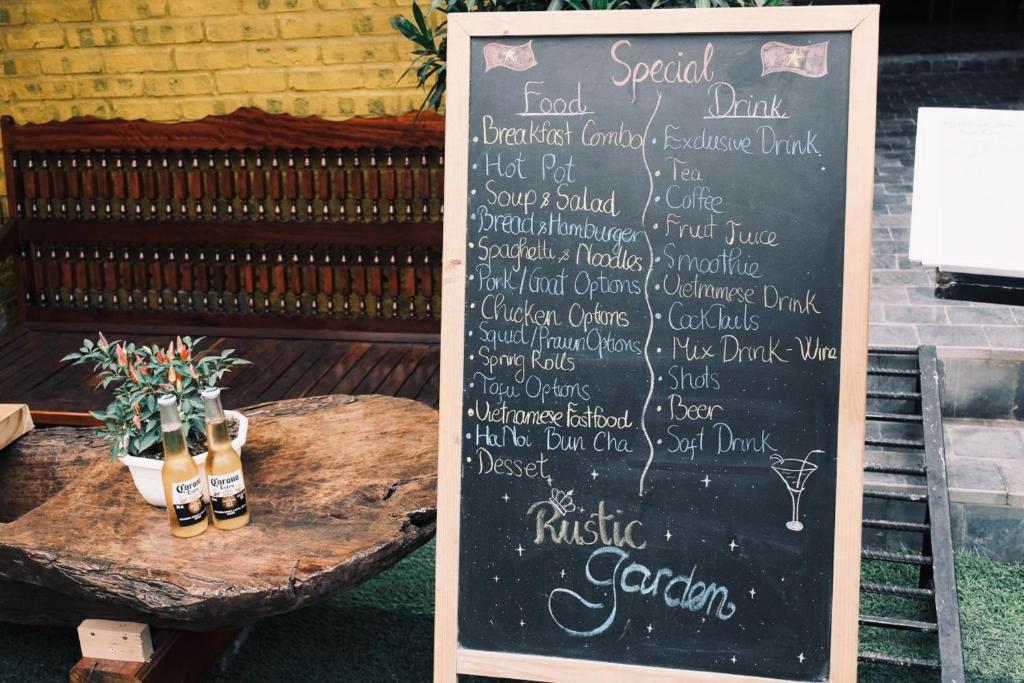 Special
Food
Breakfast Combo
Hot Pot
Soup & Salad
Bread & Hamburger
Spaghetti & Noodles
Pork/Goat Options
Chicken Options
Squid/Prawn Options
Spring Rolls
Tofu Options
Vietnamese Fastfood
HaNoi Bun Cha
Desset
Drink
Exclusive Drink
Tea
Coffee
Fruit Juice
Smoothie
Vietnamese Drink
Cocktails
Mix Drink - Wine
Shots
Beer
Soft Drink
Rustic
garden
Corona
Extra
Corona
Extra